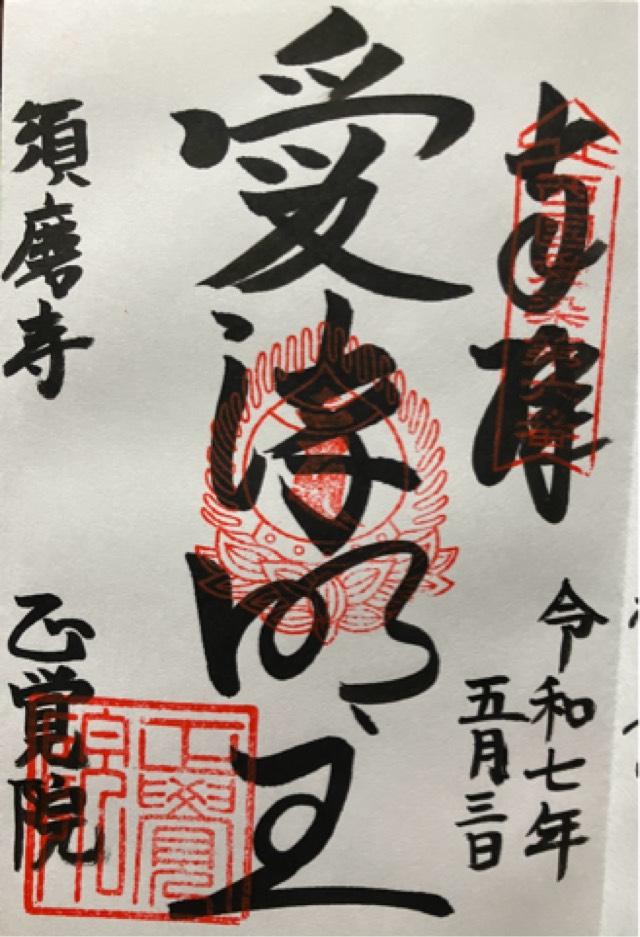 奉拝
令和七年
五月三日
愛染明王
須磨寺
正覚院
正覺
院印